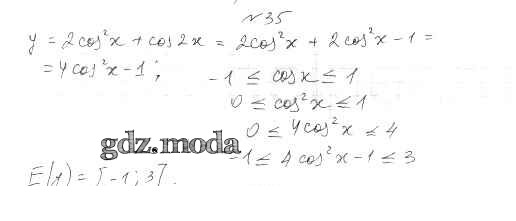 №35
y = 2cos²x + cos2x = 2cos²x + 2cos²x - 1 =
= 4cos²x - 1; -1 ≤ cosx ≤ 1
0 ≤ cos²x ≤ 1
0 ≤ 4cos²x ≤ 4
gdz.moda
-1 ≤ 4cos²x - 1 ≤ 3
E(y) = [-1; 3].